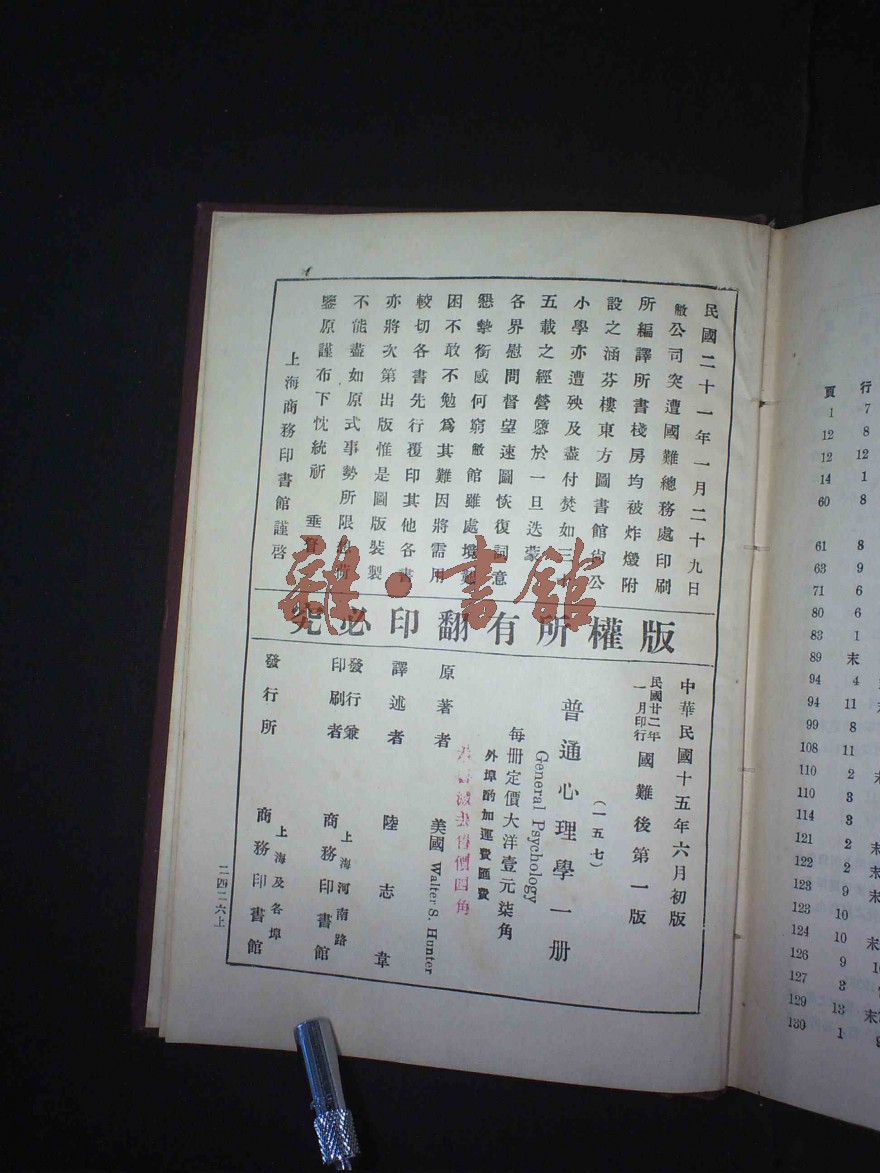 民國二十一年一月二十九日
敝公司突遭國難總務處印刷
所編譯所書棧房均被炸燬附
設之涵芬樓東方圖書館尙公
小學亦遭殃及盡付焚如三十
五載之經營隳於一旦迭蒙
各界慰問督望速圖恢復詞意
懇摯銜感何窮敝館雖處境
困不敢不勉爲其難因將需用
較切各書先行覆印其他各書
亦將次第出版惟是圖版裝製
不能盡如原式事勢所限
鑒原謹布下忱統祈 垂
上海商務印書館謹啓
版權所有翻印必究
中華民國十五年六月初版
民國廿二年一月印行 國難後第一版
(一五七)
普通心理學一册
General Psychology
每册定價大洋壹元柒角
外埠酌加運費匯費
原著者 美國 Walter S. Hunter
譯述者 陸志韋
發行兼印刷者 上海河南路 商務印書館
發行所 上海及各埠 商務印書館
二四二六上
雜·書館
頁 行
1 7
12 8
12 12
14 1
60 8
61 8
63 9
71 6
80 6
83 1
89 末
94 4
94 11
99 8
108 11
110 2
110 3
114 3
121 2
122 2
123 9
123 10
124 10
126 9
127 3
129 13
130 1